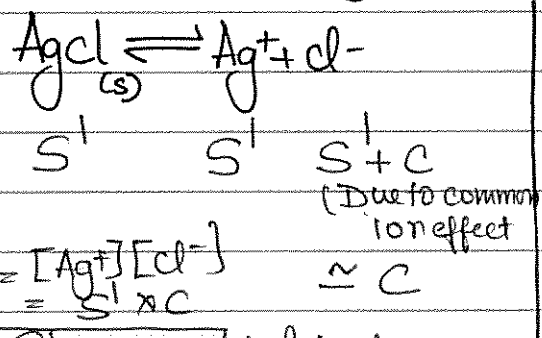 AgCl(s) ⇌ Ag⁺ + Cl⁻
S' S' S' + C
(Due to common
ion effect
= [Ag⁺][Cl⁻] ≃ C
= S' × C